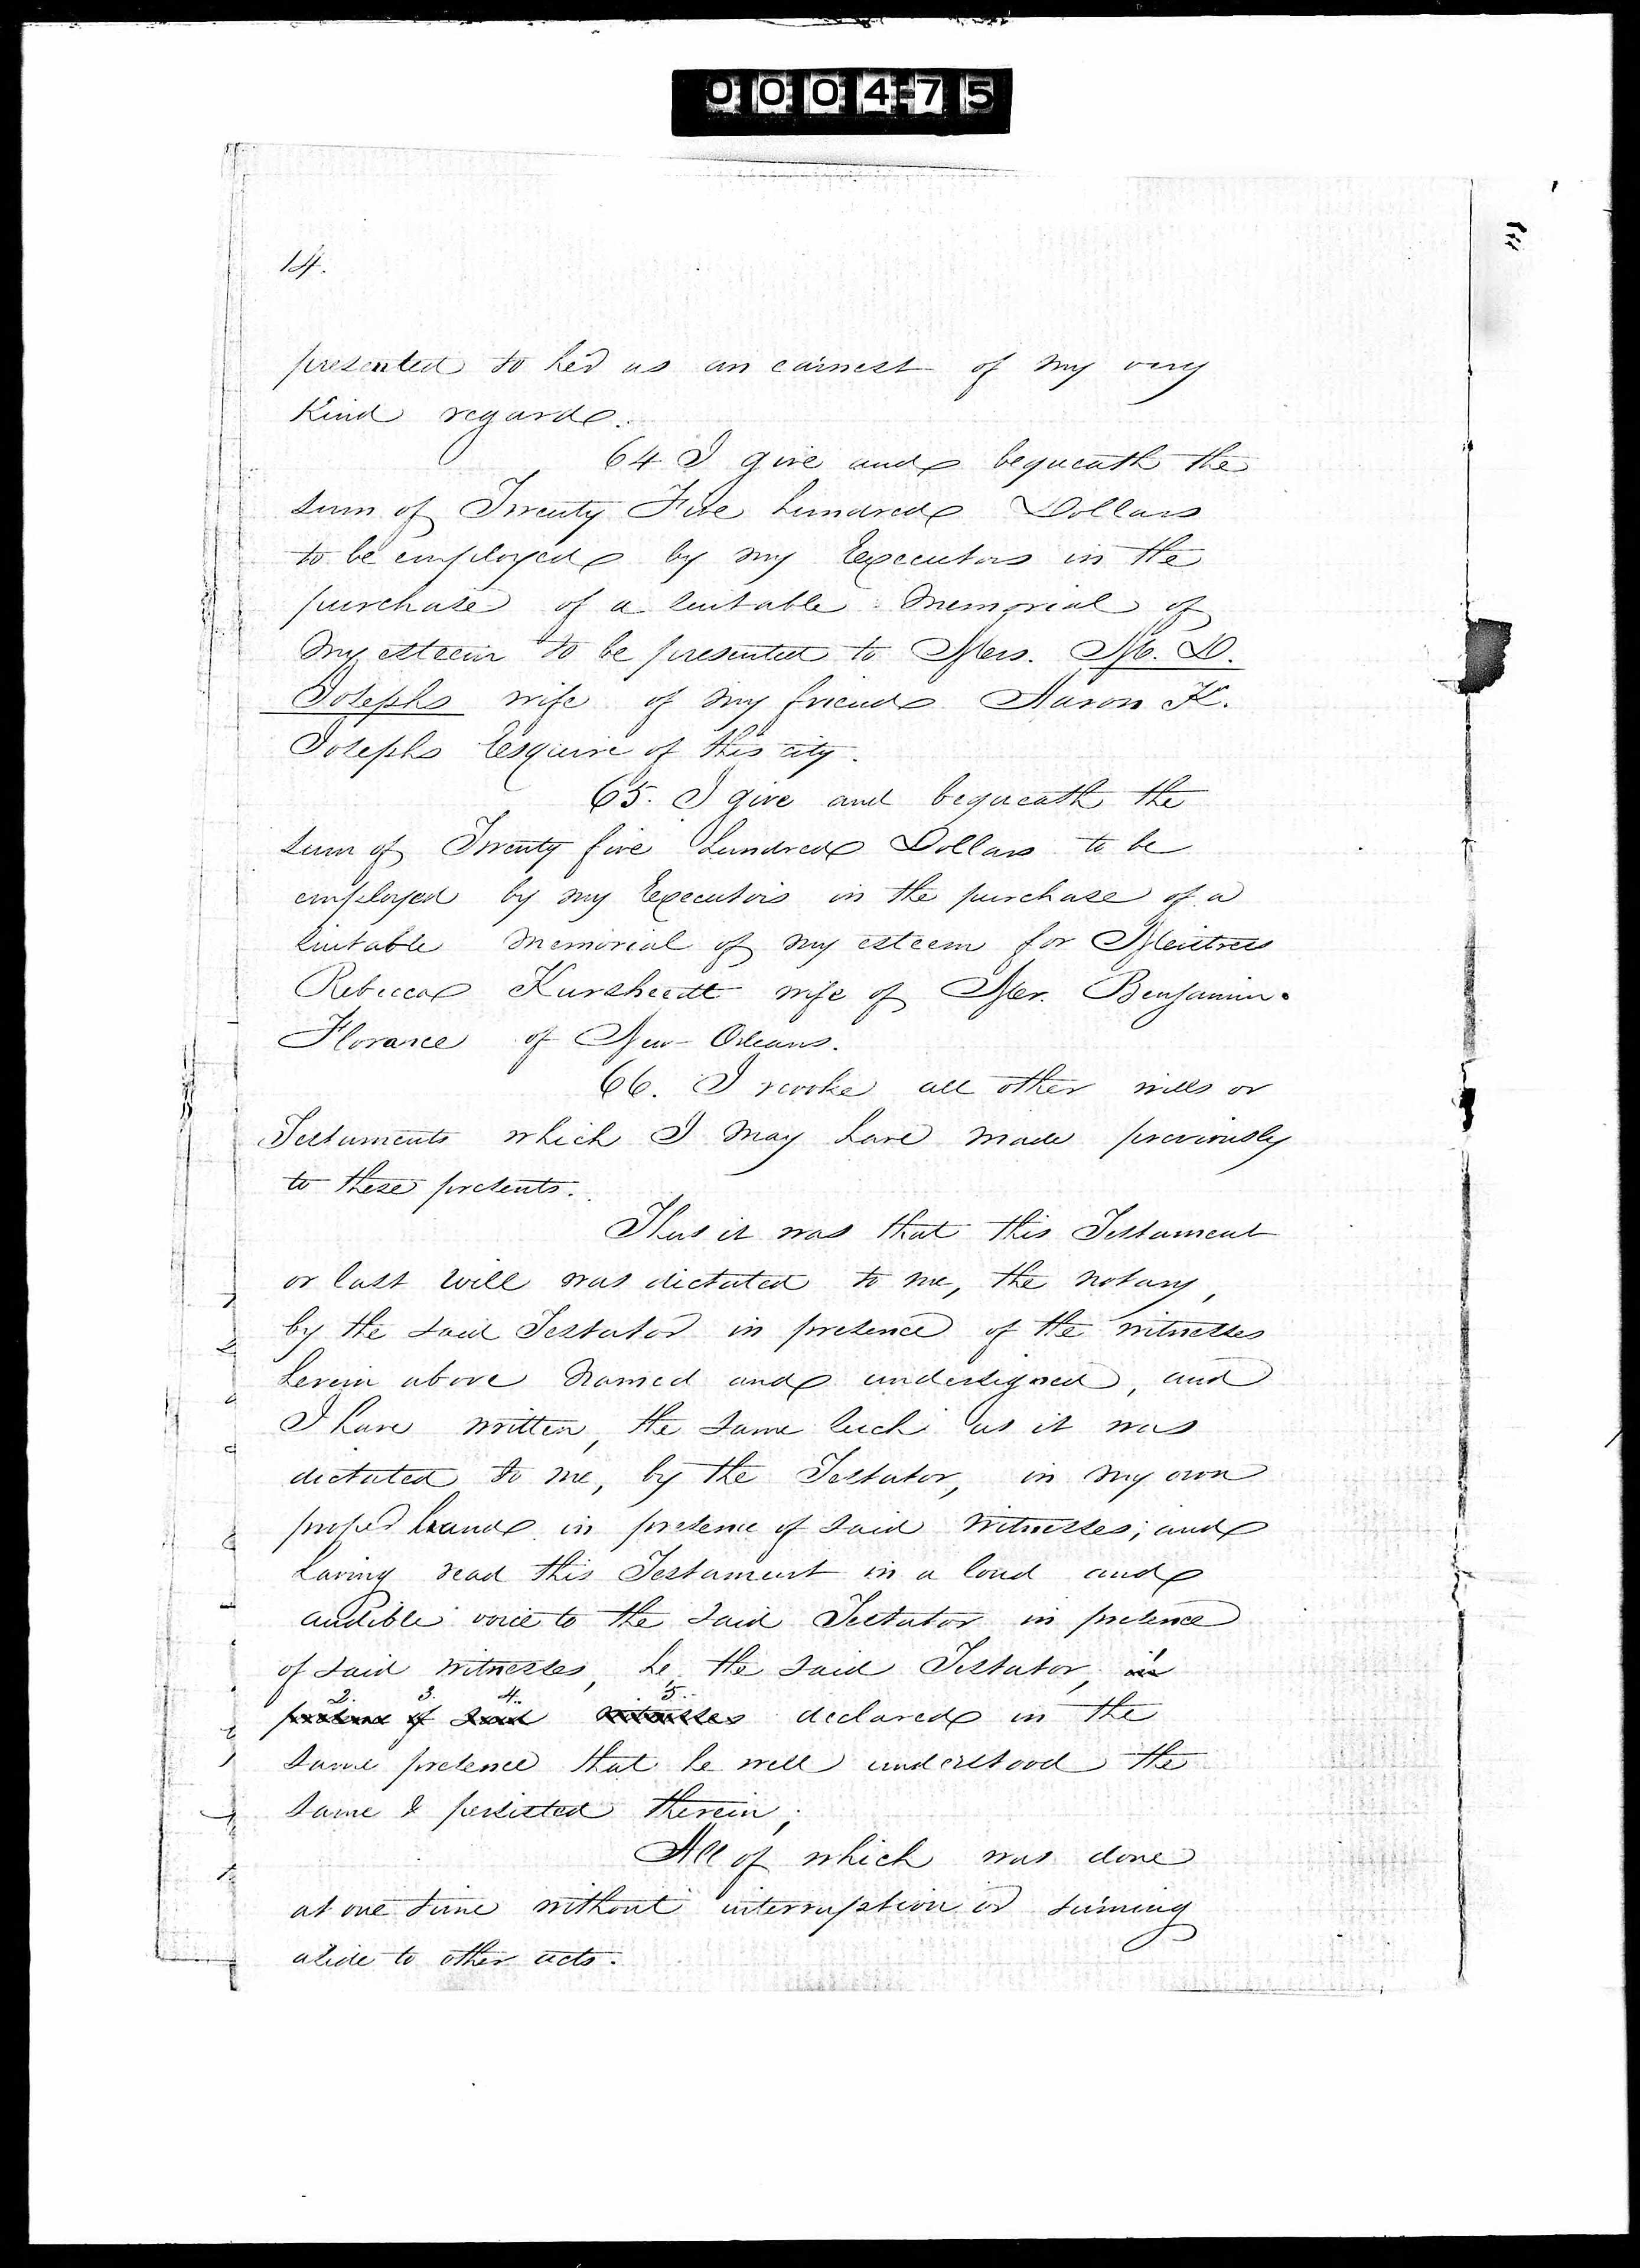 000475
14.
presented to her as an earnest of my very
Kind regard.
64 I give and bequeath the
sum of Twenty Five hundred Dollars
to be employed by my Executors in the
purchase of a suitable Memorial of
My esteem to be presented to Mrs. M. D.
Josephs wife of my friend Aaron K.
Josephs Esquire of this city.
65. I give and bequeath the
sum of Twenty five hundred Dollars to be
employed by my Executors in the purchase of a
suitable Memorial of my esteem for Mistress
Rebecca Kursheedt wife of Mr. Benjamin
Florance of New-Orleans.
66. I revoke all other wills or
Testaments which I may have made previously
to these presents.
Thus it was that this Testament
or last will was dictated to me, the notary,
by the said Testator in presence of the witnesses
herein above Named and undersigned, and
I have written, the same such as it was
dictated to me, by the Testator, in my own
proper hand in presence of said Witnesses; and
having read this Testament in a loud and
audible voice to the said Testator in presence
of said witnesses, he the said Testator, in 1
presence 2. of 3. said 4. witnesses 5. declared in the
same presence that he well understood the
same & persisted therein;
All of which was done
at one time without interruption or turning
aside to other acts.